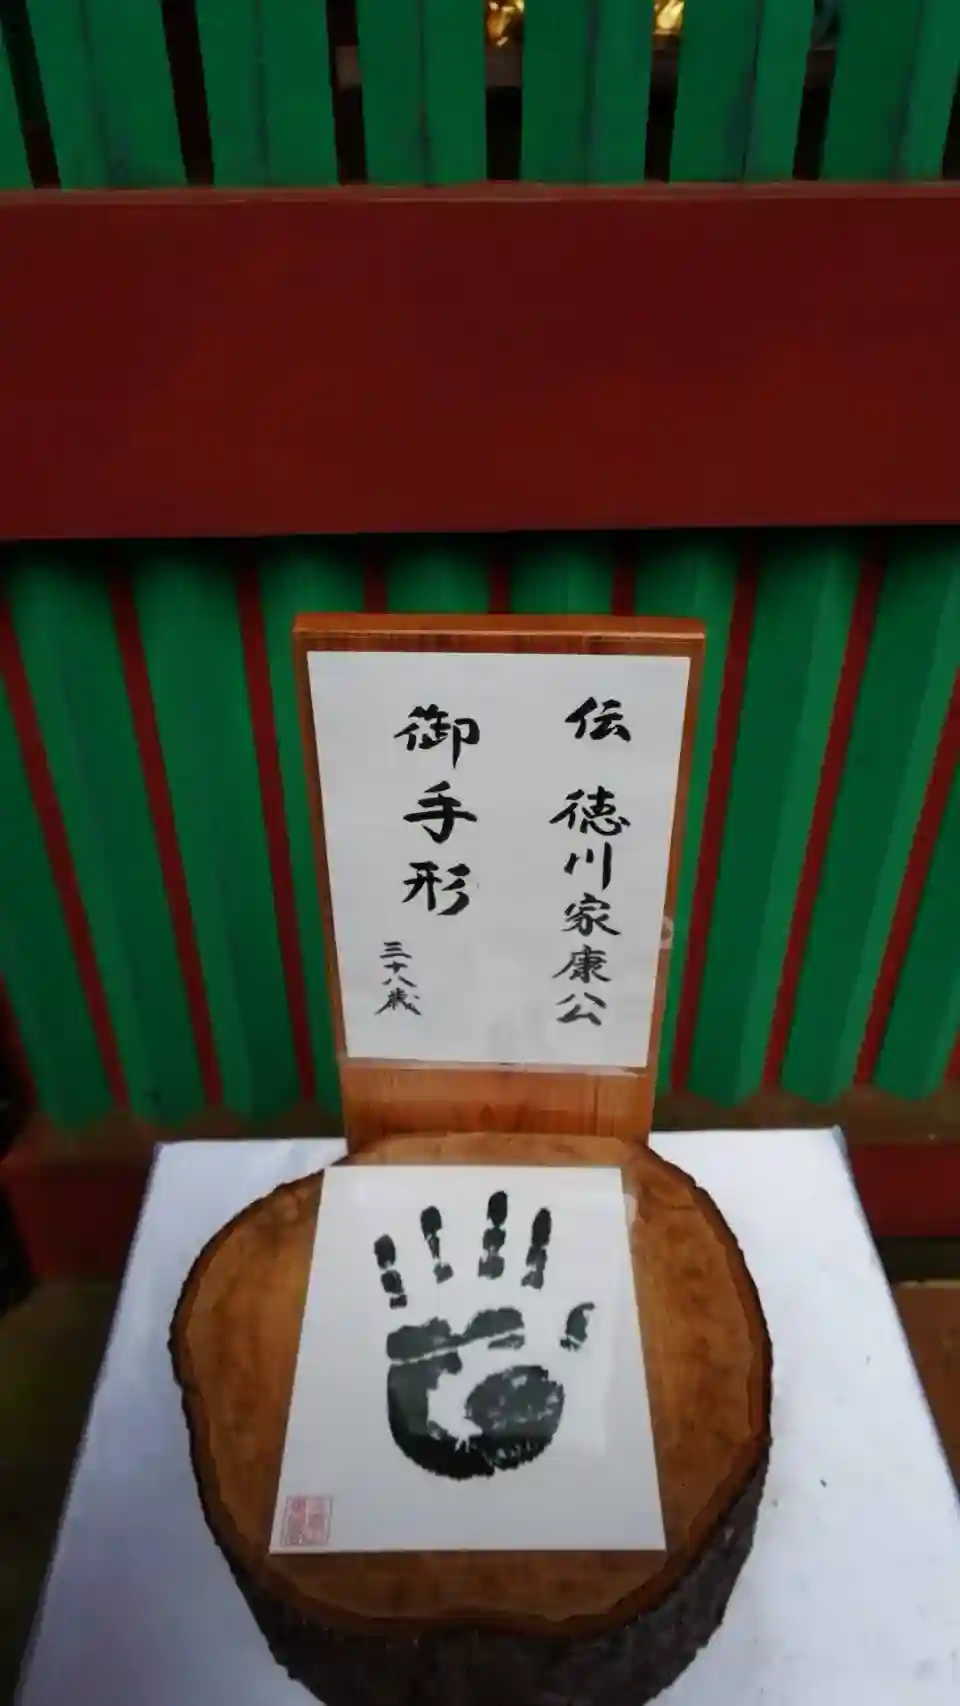 伝 徳川家康公
御手形 三十八歳